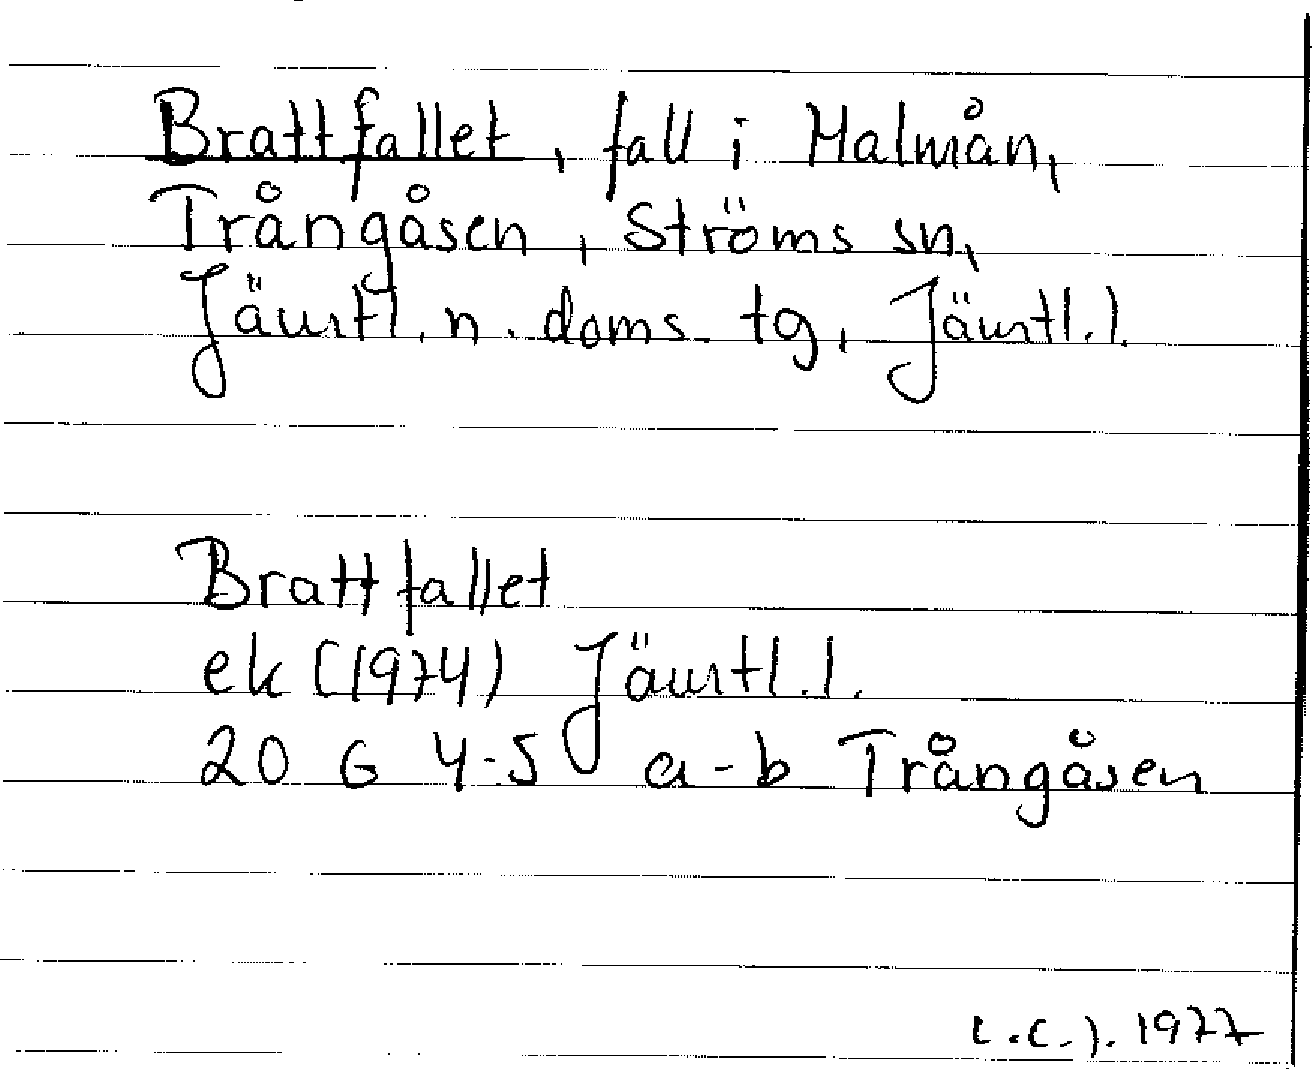 Brattfallet, fall i Malmån,
Trångåsen, Ströms sn,
Jämtl. n. doms. tg, Jämtl. l.
Brattfallet
ek (1974) Jämtl. l.
20 G 4-5 a-b Trångåsen
L.C.J. 1977